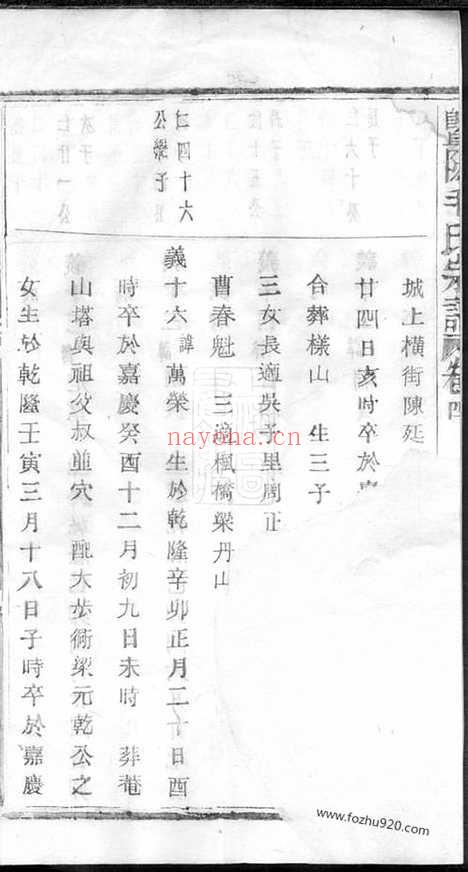 暨陽毛氏宗譜 卷四
城上橫街陳延
廿四日亥時卒於
合葬樣山 生三子
三女長適吳子里周正
曹春魁 三適楓橋梁丹山
仁四十六
公繼子
義十六 諱萬榮 生於乾隆辛卯正月二十日酉
時卒於嘉慶癸酉十二月初九日未時 葬菴
山塔與祖父叔並穴配大步衕梁元乾公之
女生於乾隆壬寅三月十八日子時卒於嘉慶
nayana.cn
www.fozhu920.com